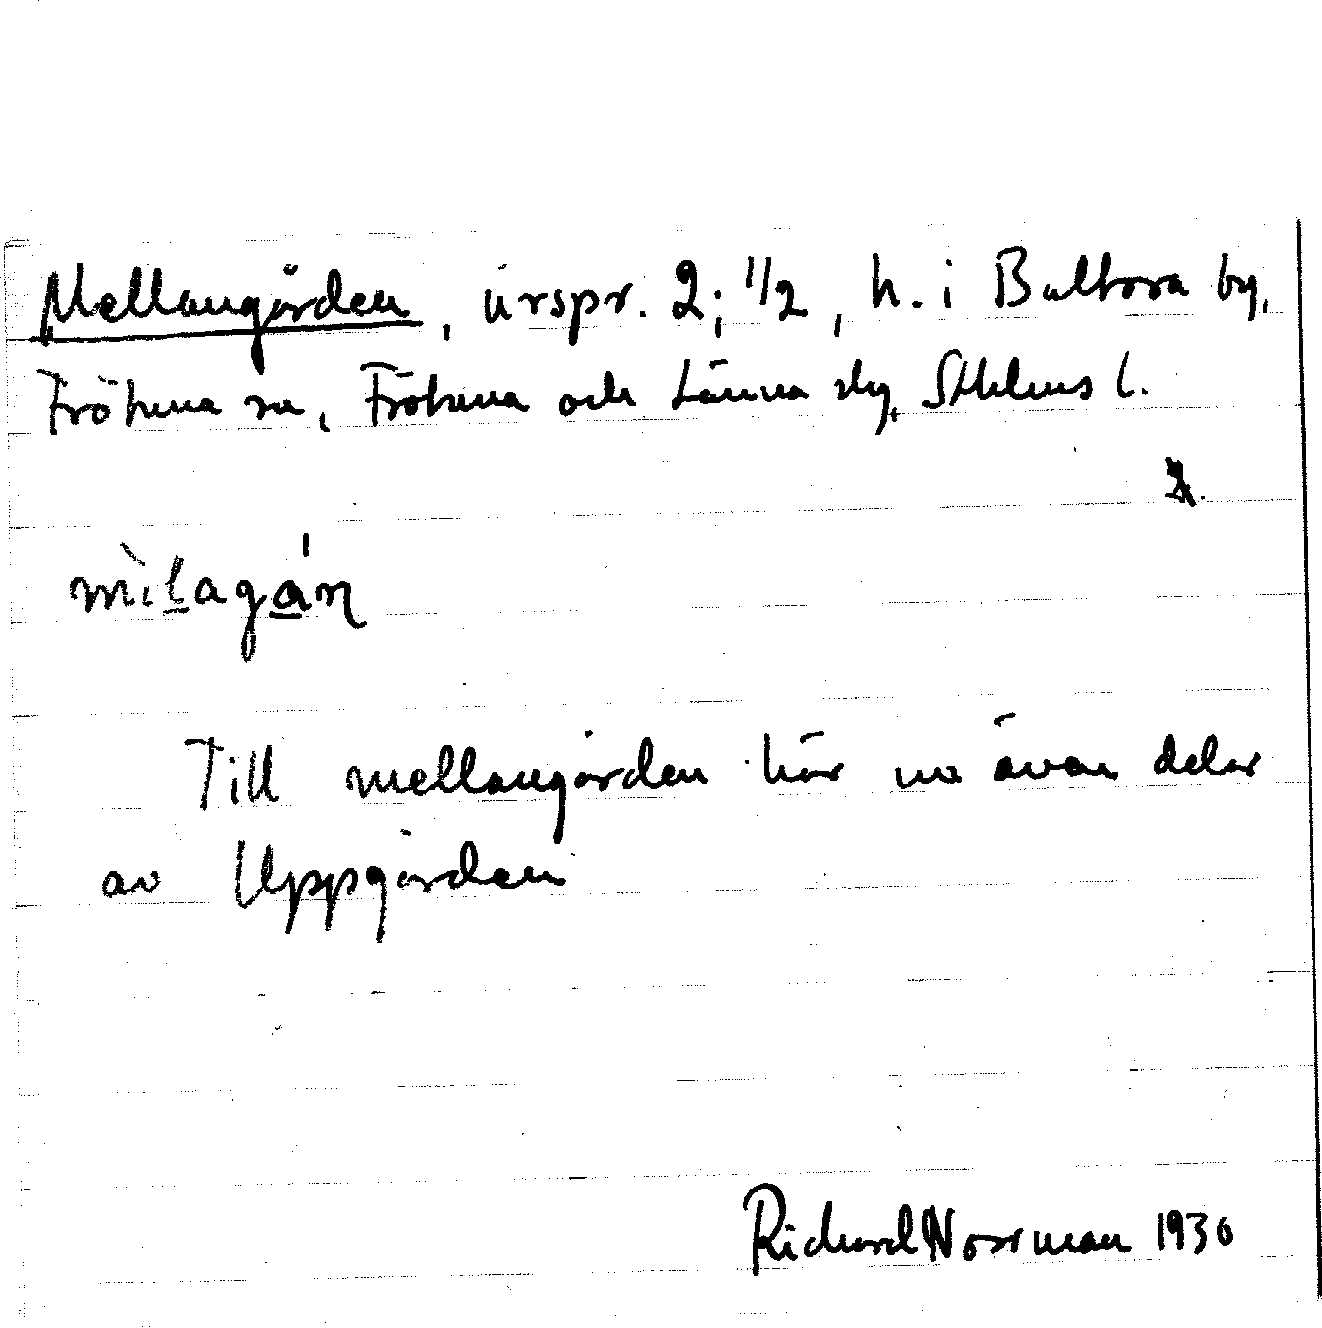 Mellangården, urspr. 2; 1/2, h. i Baltora by,
Frötuna sn, Frötuna och Länna skg, Sthlms l.
mìlagán
Till mellangården hör nu även delar
av Uppgården
Richard Norrman 1930